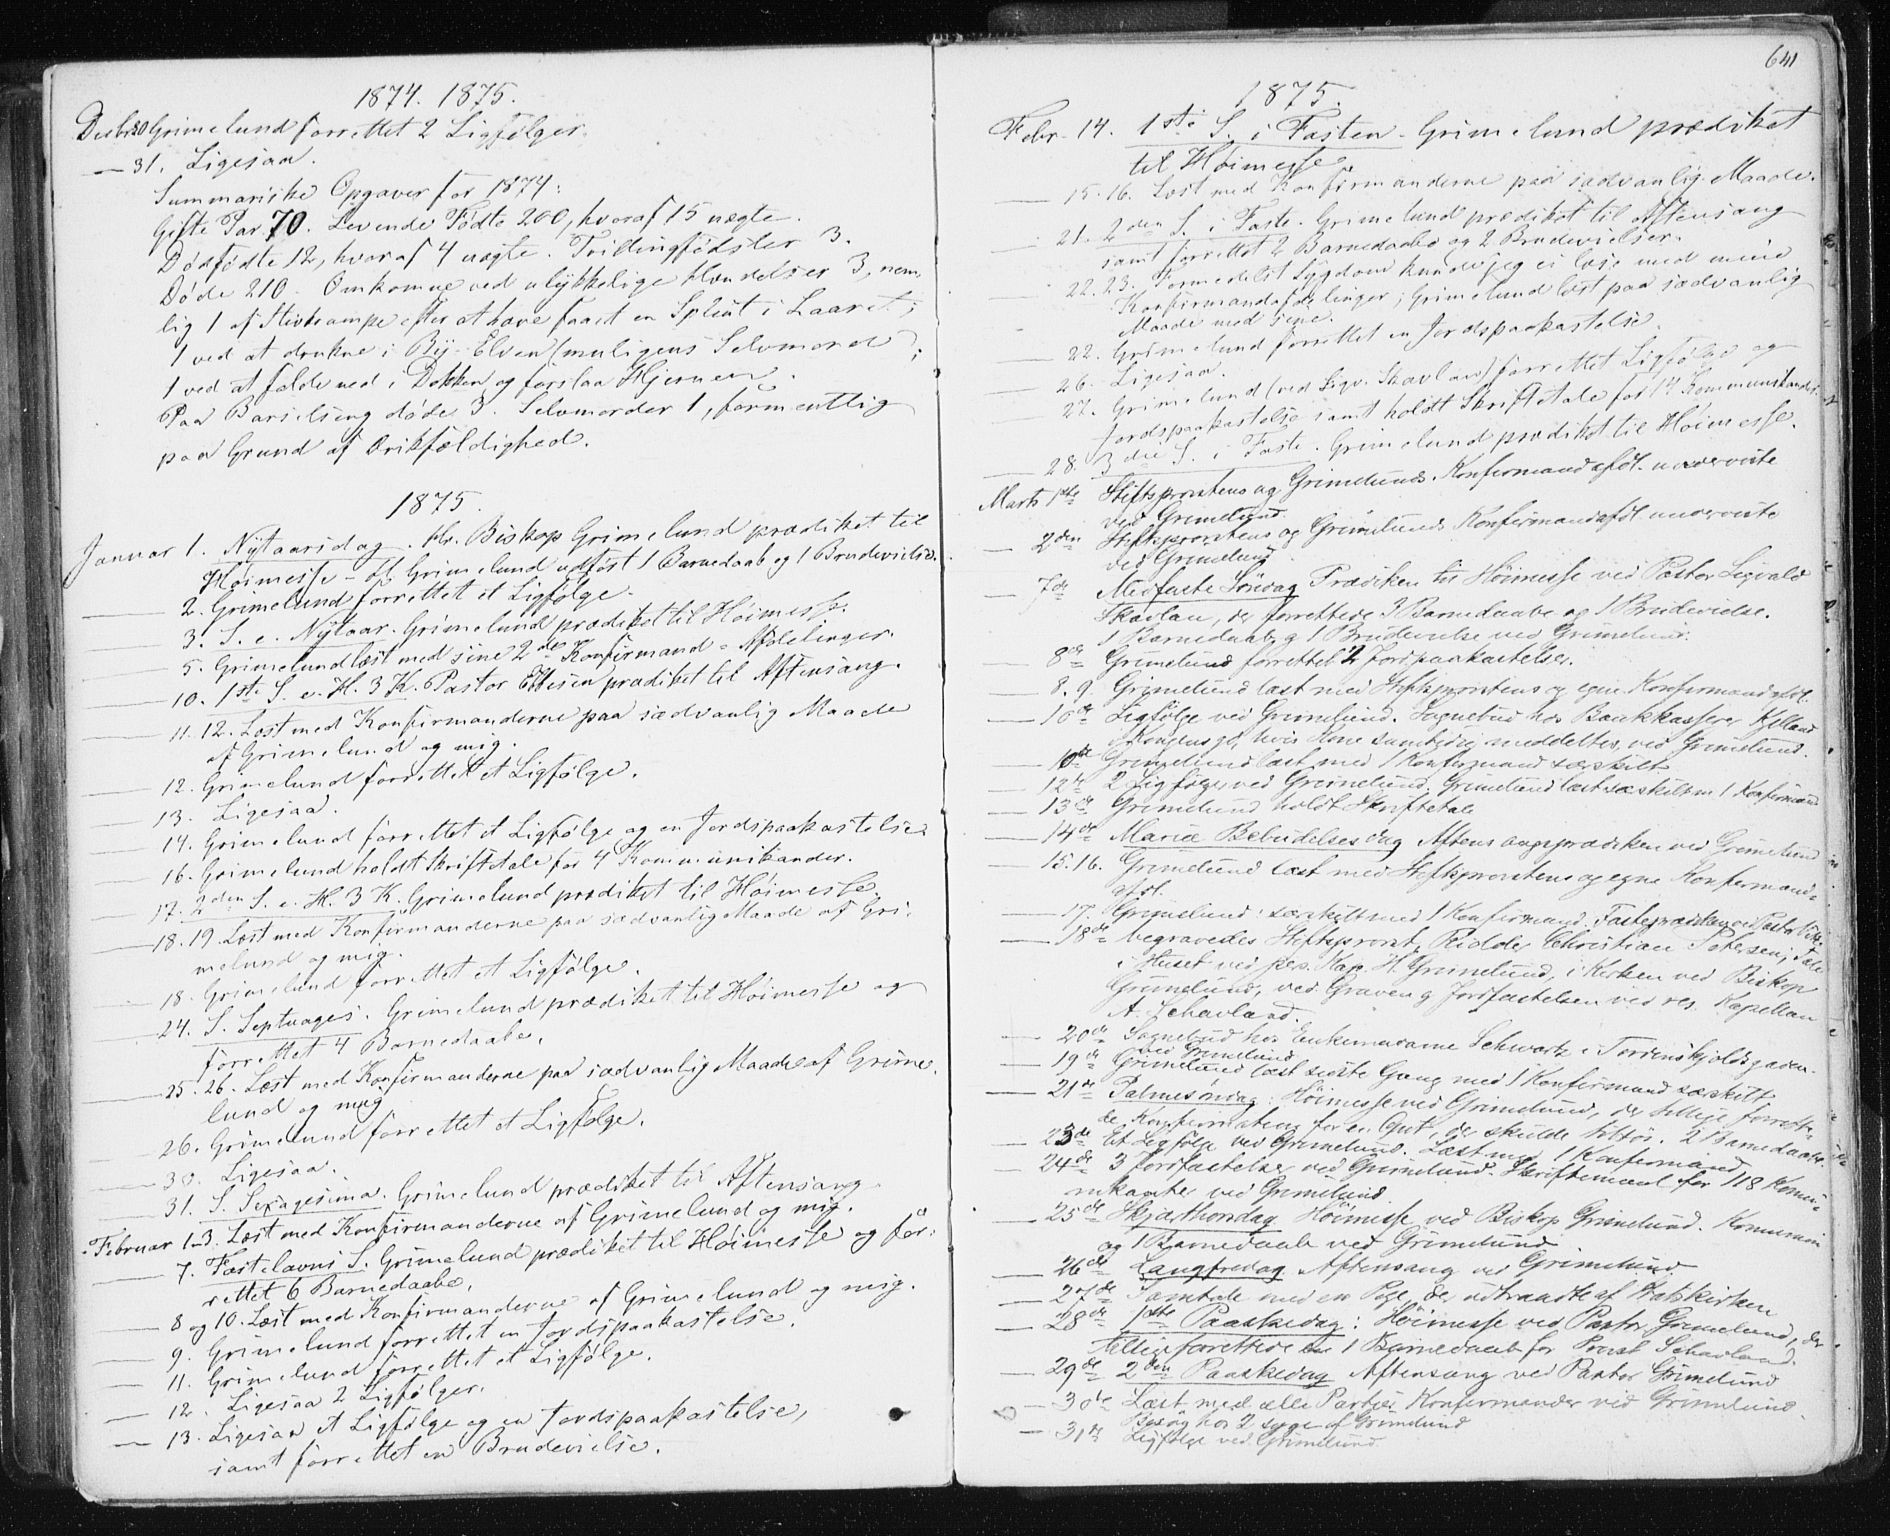 1874. 1875.
Decbr 30 Grimelund forrettet 2 Ligfølger.
— 31. Ligesaa.
Summariske Opgaver for 1874:
Gifte Par 70. Levende Fødte 200, hvoraf 15 uægte.
Dødfødte 12, hvoraf 4 uægte. Trillingfødsler 3.
Døde 210. Omkomne ved ulykkelige Hændelser 3, nem,
lig 1 af Stivkrampe efter at have faaet en Splint i Laaret;
1 ved at drukne i By-Elven (muligens Selvmord);
1 ved at falde ned i Dokken og forslaa Hjernen.
Paa Barselseng døde 3. Selvmorder 1, formentlig
paa Grund af Drikfældighed.
1875.
Januar 1. Nytaarsdag. Hr. Biskop Grimelund prædiket til
Høimesse – af Grimelund udført 1 Barnedaab og 1 Brudevielse.
— 2. Grimelund forrettet et Ligfølge.
— 3. S. e. Nytaar. Grimelund prædiket til Høimesse.
— 5. Grimelund læst med sine 2de Konfirmand-Afdelinger.
— 10. 1ste S. e. H. 3 K. Pastor Ellesen prædiket til Aftensang.
— 11. 12. Læst med Konfirmanderne paa sædvanlig Maade
af Grimelund og mig.
— 12. Grimelund forrettet et Ligfølge.
— 13. Ligesaa.
— 14. Grimelund forrettet et Ligfølge og en Jordspaakastelse.
— 16. Grimelund holdt Skriftetale for 4 Kommunikander.
— 17. 2den S. e. H. 3 K. Grimelund prædiket til Høimesse.
— 18. 19. Læst med Konfirmanderne paa sædvanlig Maade af Gri-
melund og mig.
— 18. Grimelund forrettet et Ligfølge.
— 24. S. Septuages. Grimelund prædiket til Høimesse og
forrettet 4 Barnedaabe.
— 25. 26. Læst med Konfirmanderne paa sædvanlig Maade af Grime-
lund og mig.
— 26. Grimelund forrettet et Ligfølge.
— 30. Ligesaa.
— 31. S. Sexagesima. Grimelund prædiket til Aftensang.
Februar 1-3. Læst med Konfirmanderne af Grimelund og mig.
— 7. Fastelavns S. Grimelund prædiket til Høimesse og for-
rettet 6 Barnedaabe.
— 8 og 10. Læst med Konfirmanderne af Grimelund og mig.
— 9. Grimelund forrettet en Jordspaakastelse.
— 11. Grimelund forrettet et Ligfølge.
— 12. Ligesaa 2 Ligfølger.
— 13. Ligesaa et Ligfølge og en Jordspaakastelse,
samt forrettet en Brudevielse.
641
1875.
Febr. 14. 1ste S. i Fasten. Grimelund prædiket
til Høimesse
— 15. 16. Læst med Konfirmanderne paa sædvanlig Maade.
— 21. 2den S. i Faste. Grimelund prædiket til Aftensang
samt forrettet 2 Barnedaabe og 2 Brudevielser.
— 22. 23. Formedelst Sygdom kunde jeg ei læse med mine
Konfirmandafdelinger; Grimelund læst paa sædvanlig
Maade med sine.
— 22. Grimelund forrettet en Jordspaakastelse.
— 26. Ligesaa.
— 27. Grimelund (ved Sigv. Skavlan) forrettet Ligfølge og
Jordspaakastelse samt holdt Skriftetale for 17 Kommunikander.
— 28. 3die S. i Faste. Grimelund prædiket til Høimesse.
Marts 1ste Stiftsprovstens og Grimelunds Konfirmandafdl. underviste
ved Grimelund.
— 2den Stiftsprovstens og Grimelunds Konfirmandafdl. underviste
ved Grimelund
— 7de Midfaste Søndag Prædiken til Høimesse ved Pastor Sigvald
Skavlan, der forrettede 3 Barnedaabe og 1 Brudevielse.
1 Barnedaab og 1 Brudevielse ved Grimelund.
— 8de Grimelund forrettet 2 Jordpaakastelser.
— 8. 9. Grimelund læst med Stiftsprovstens og egne Konfirmandafdl.
— 10de Ligfølge ved Grimelund. Sognebud hos Bankkasserer Kjelland
i Kongensgd, hvis Kone samtidig meddeltes, ved Grimelund.
— 10de Grimelund læst med 1 Konfirmand særskilt
— 12te 2 Ligfølger ved Grimelund. Grimelund læst særskilt m 1 Konfirmand
— 13de Grimelund holdt Skriftetale
— 14de Mariæ Bebudelsesdag Aftensangsprædiken ved Grimelund
15. 16. Grimelund læst med Stiftsprovstens og egne Konfirmand-
afdl.
— 17. Grimelund særskilt med 1 Konfirmand. Fasteprædiken ved Pastor
— 18de begravedes Stiftsprovst, Ridder Christian Petersen; Tale
i Huset ved pers. Kap. H. Grimelund, i Kirken ved Biskop
Grimelund, ved Graven og Jordfæstelsen ved res. Kapellan
A. Schavland.
— 20de Sognebud hos Enkemadame Schwartz i Tordenskjoldsgaden.
ved Grimelund
— 19de Grimelund læst sidste Gang med 1 Konfirmand særskilt.
— 21de Palmesøndag: Høimesse ved Grimelund, der tillige forrette-
de Konfirmation for en Gut, der skulde tilsjøs. 2 Barnedaabe.
— 23de Et Ligfølge ved Grimelund. Læst med 1 Konfirmand
— 24de 3 Jordfæstelser ved Grimelund. Skriftemaal for 118 Kommu-
nikanter ved Grimelund.
— 25de Skjærthorsdag Høimesse ved Biskop Grimelund. Kommunion
og 1 Barnedaab ved Grimelund
— 26de Langfredag Aftensang ved Grimelund
— 27de Samtale med en Pige, der udtraadte af Statskirken
— 28de 1ste Paaskedag: Høimesse ved Pastor Grimelund, der
tillige forrettede 1 Barnedaab for Provst Schavland.
— 29de 2den Paaskedag Aftensang ved Pastor Grimelund
— 30de Læst med alle Partier Konfirmander ved Grimelund.
Besøg hos 2 syge af Grimelund
— 31te Ligfølge ved Grimelund.